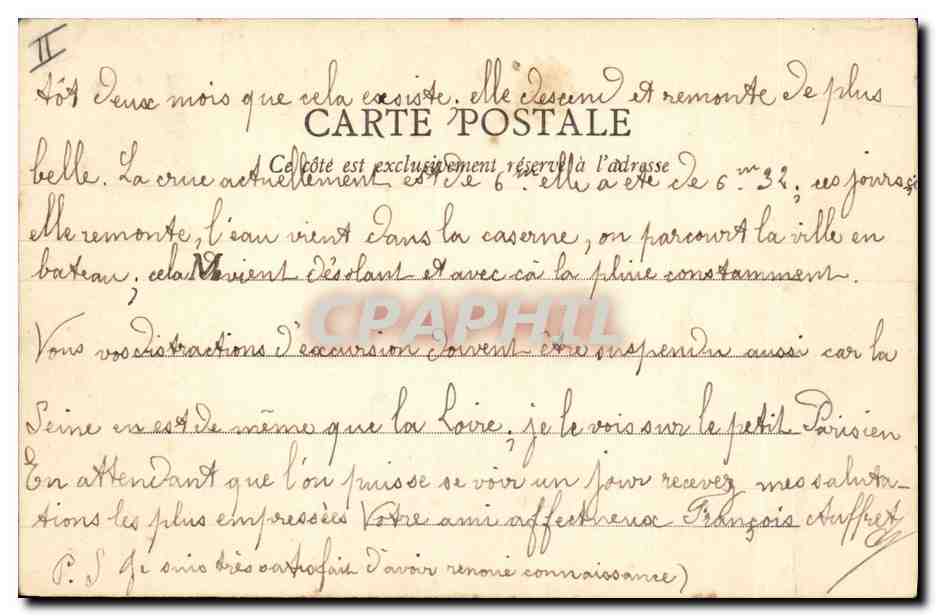 II
tôt deux mois que cela exsiste. elle descend et remonte de plus
CARTE POSTALE
Ce côté est exclusivement réservé à l'adresse
belle. La crue actuellement est de 6m elle a été de 6m 32; ces jours ci
elle remonte, l'eau vient dans la caserne, on parcourt la ville en
bateau; cela M devient désolant et avec cà la pluie constamment.
CPAPHIL
Vous vos distractions d'excursion doivent être suspendu aussi car la
Seine en est de même que la Loire; je le vois sur le petit Parisien
En attendant que l'on puisse se voir un jour recevez mes saluta-
tions les plus empressées Votre ami affectueux François Auffret
P. S Je suis très satisfait d'avoir renoué connaissance)